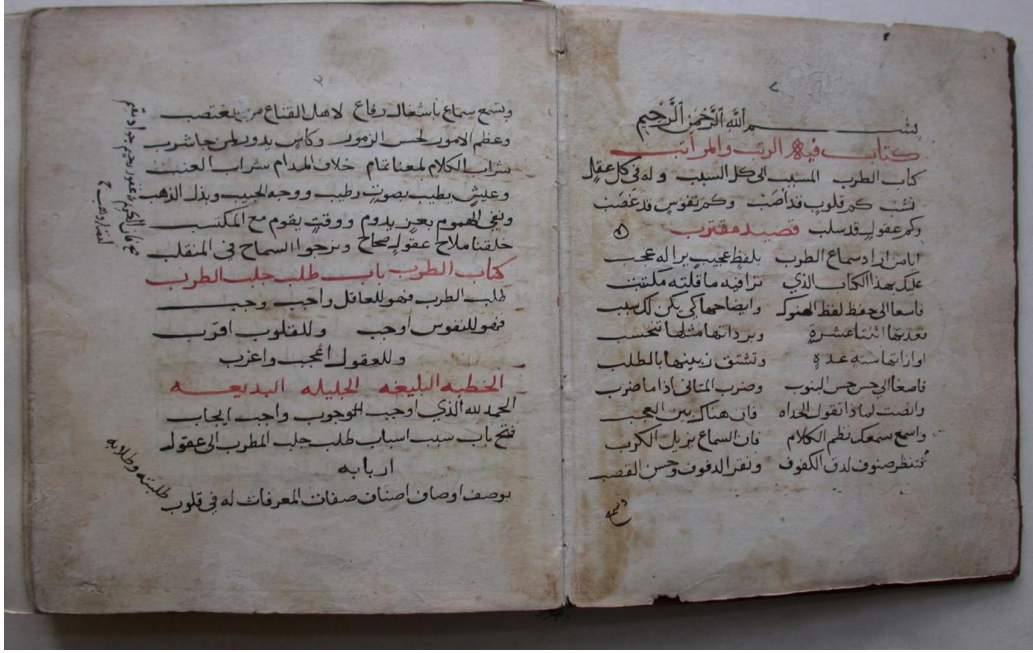 بسم الله الرحمن الرحيم
كتاب فيه الرتب والمراتب
كتاب الطرب المسبب الى كل السبب وله في كل عقل
نشب كم قلوب قد وكم نفوس قد غصبت
وكم عقول قد سلب قصيد مقترب
ايا من اراد سماع الطرب بلفظ عجيب يرا له عجب
عليك بهذا الكتاب الذي ترا فيه ما قلته مكتتب
فاسعا الى حفظ لفظ الهنوك وايضاحها كي يكن لك سبب
فعدتها اثنتا عشرة وبرداتها مثلها تحتسب
اوازاتها سته عدة وتشتق زينها بالطلب
فاصغا الى جس جس البنوب وضرب المثاني اذا ما ضرب
وانصت لما ذا تقول الحداه فان هناك بين العجب
واسمع سمعك نظم الكلام فان السماع يزيل الكرب
فتنظر صنوف لدف الكفوف ونقر الدفوف وحسن القصب
وتسمع
وتسمع سماع باشغال رفاع لاهل القناع من يغتصب
وعظم الامور لحس الزمور وكاس يدور لمن جا شرب
شراب الكلام لمعنا تمام خلاف المدام شراب العنب
وعيش يطيب بصوت رطيب ووجه الحبيب وبذل الذهب
ونفي الهموم بعز يدوم ووقت يقوم مع المكتسب
خلقنا ملاح عقول صحاح ونرجوا السماح في المنقلب
كتاب الطرب باب طلب جلب الطرب
طلب الطرب فهو للعاقل واجب وحبيب
فهو للنفوس اوجب وللقلوب اقرب
وللعقول اعجب واعزب
الخطبه البليغه الجليله البديعه
الحمد لله الذي اوجب الوجوب واجب ايجاب
فتح باب سبب اسباب طلب جلب المطرب الى عقول
اربابه
بوصف اوصاف اصناف صفات المعرفات له في قلوب
طلبته وطلابه